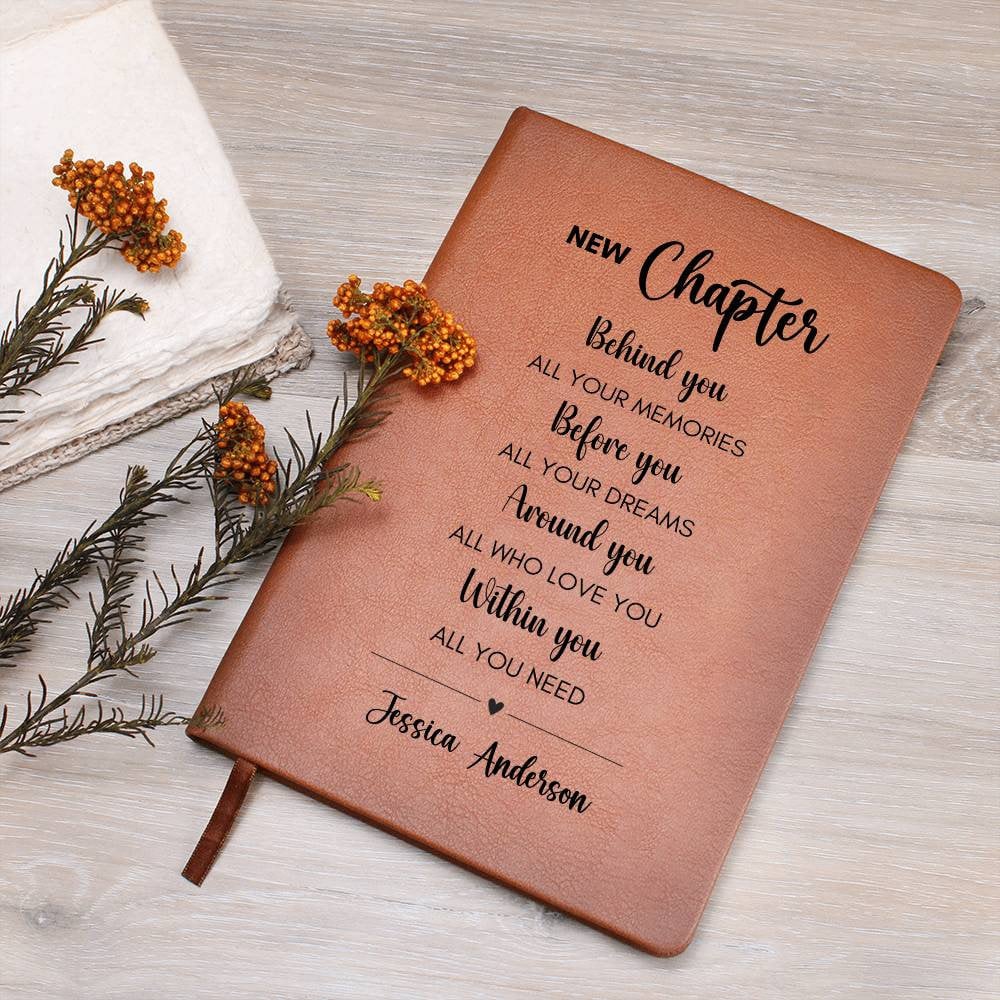 NEW Chapter
Behind you
ALL YOUR MEMORIES
Before you
ALL YOUR DREAMS
Around you
ALL WHO LOVE YOU
Within you
ALL YOU NEED
Jessica Anderson